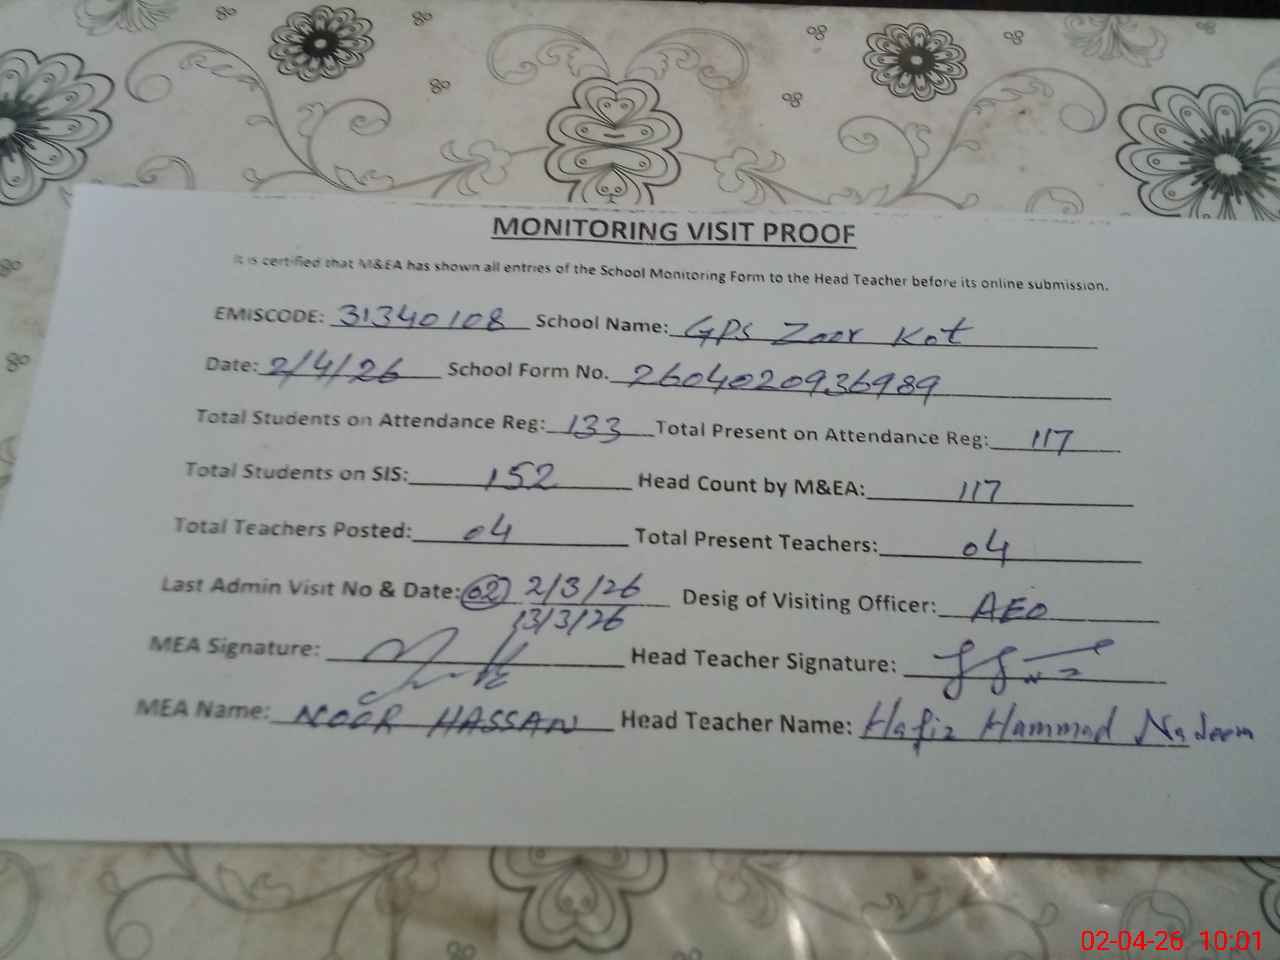 MONITORING VISIT PROOF
It is certified that M&EA has shown all entries of the School Monitoring Form to the Head Teacher before its online submission.
EMISCODE: 31340108 School Name: GPS Zaor Kot
Date: 2/4/26 School Form No. 2604020936989
Total Students on Attendance Reg: 133 Total Present on Attendance Reg: 117
Total Students on SIS: 152 Head Count by M&EA: 117
Total Teachers Posted: 04 Total Present Teachers: 04
Last Admin Visit No & Date: 02 2/3/26 Desig of Visiting Officer: AEO
13/3/26
MEA Signature: Head Teacher Signature:
MEA Name: NOOR HASSAN Head Teacher Name: Hafiz Hammad Nadeem
02-04-26 10:01